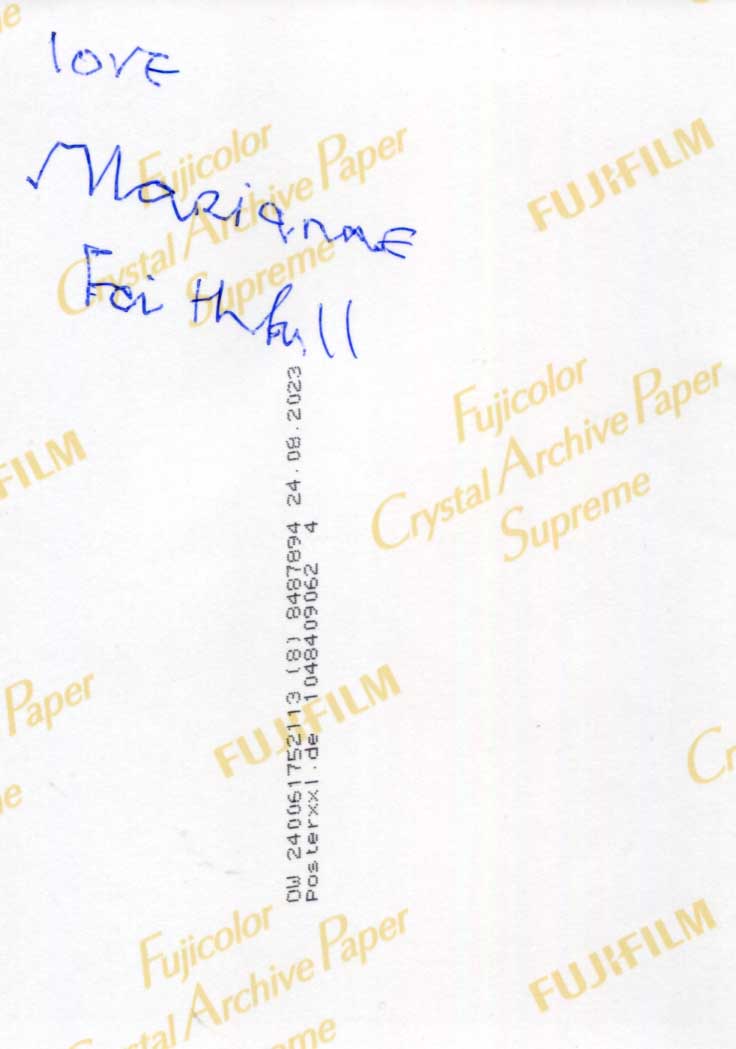 me
love
Marianne
Faithfull
Fujicolor
Crystal Archive Paper
Supreme
FUJIFILM
Fujicolor
Crystal Archive Paper
Supreme
FILM
OW 240061752113 (8) 8487894 24.08.2023
Posterxxl.de 1048409062 4
Paper
me
FUJIFILM
Cr
Fujicolor
Crystal Archive Paper
me
FUJIFILM